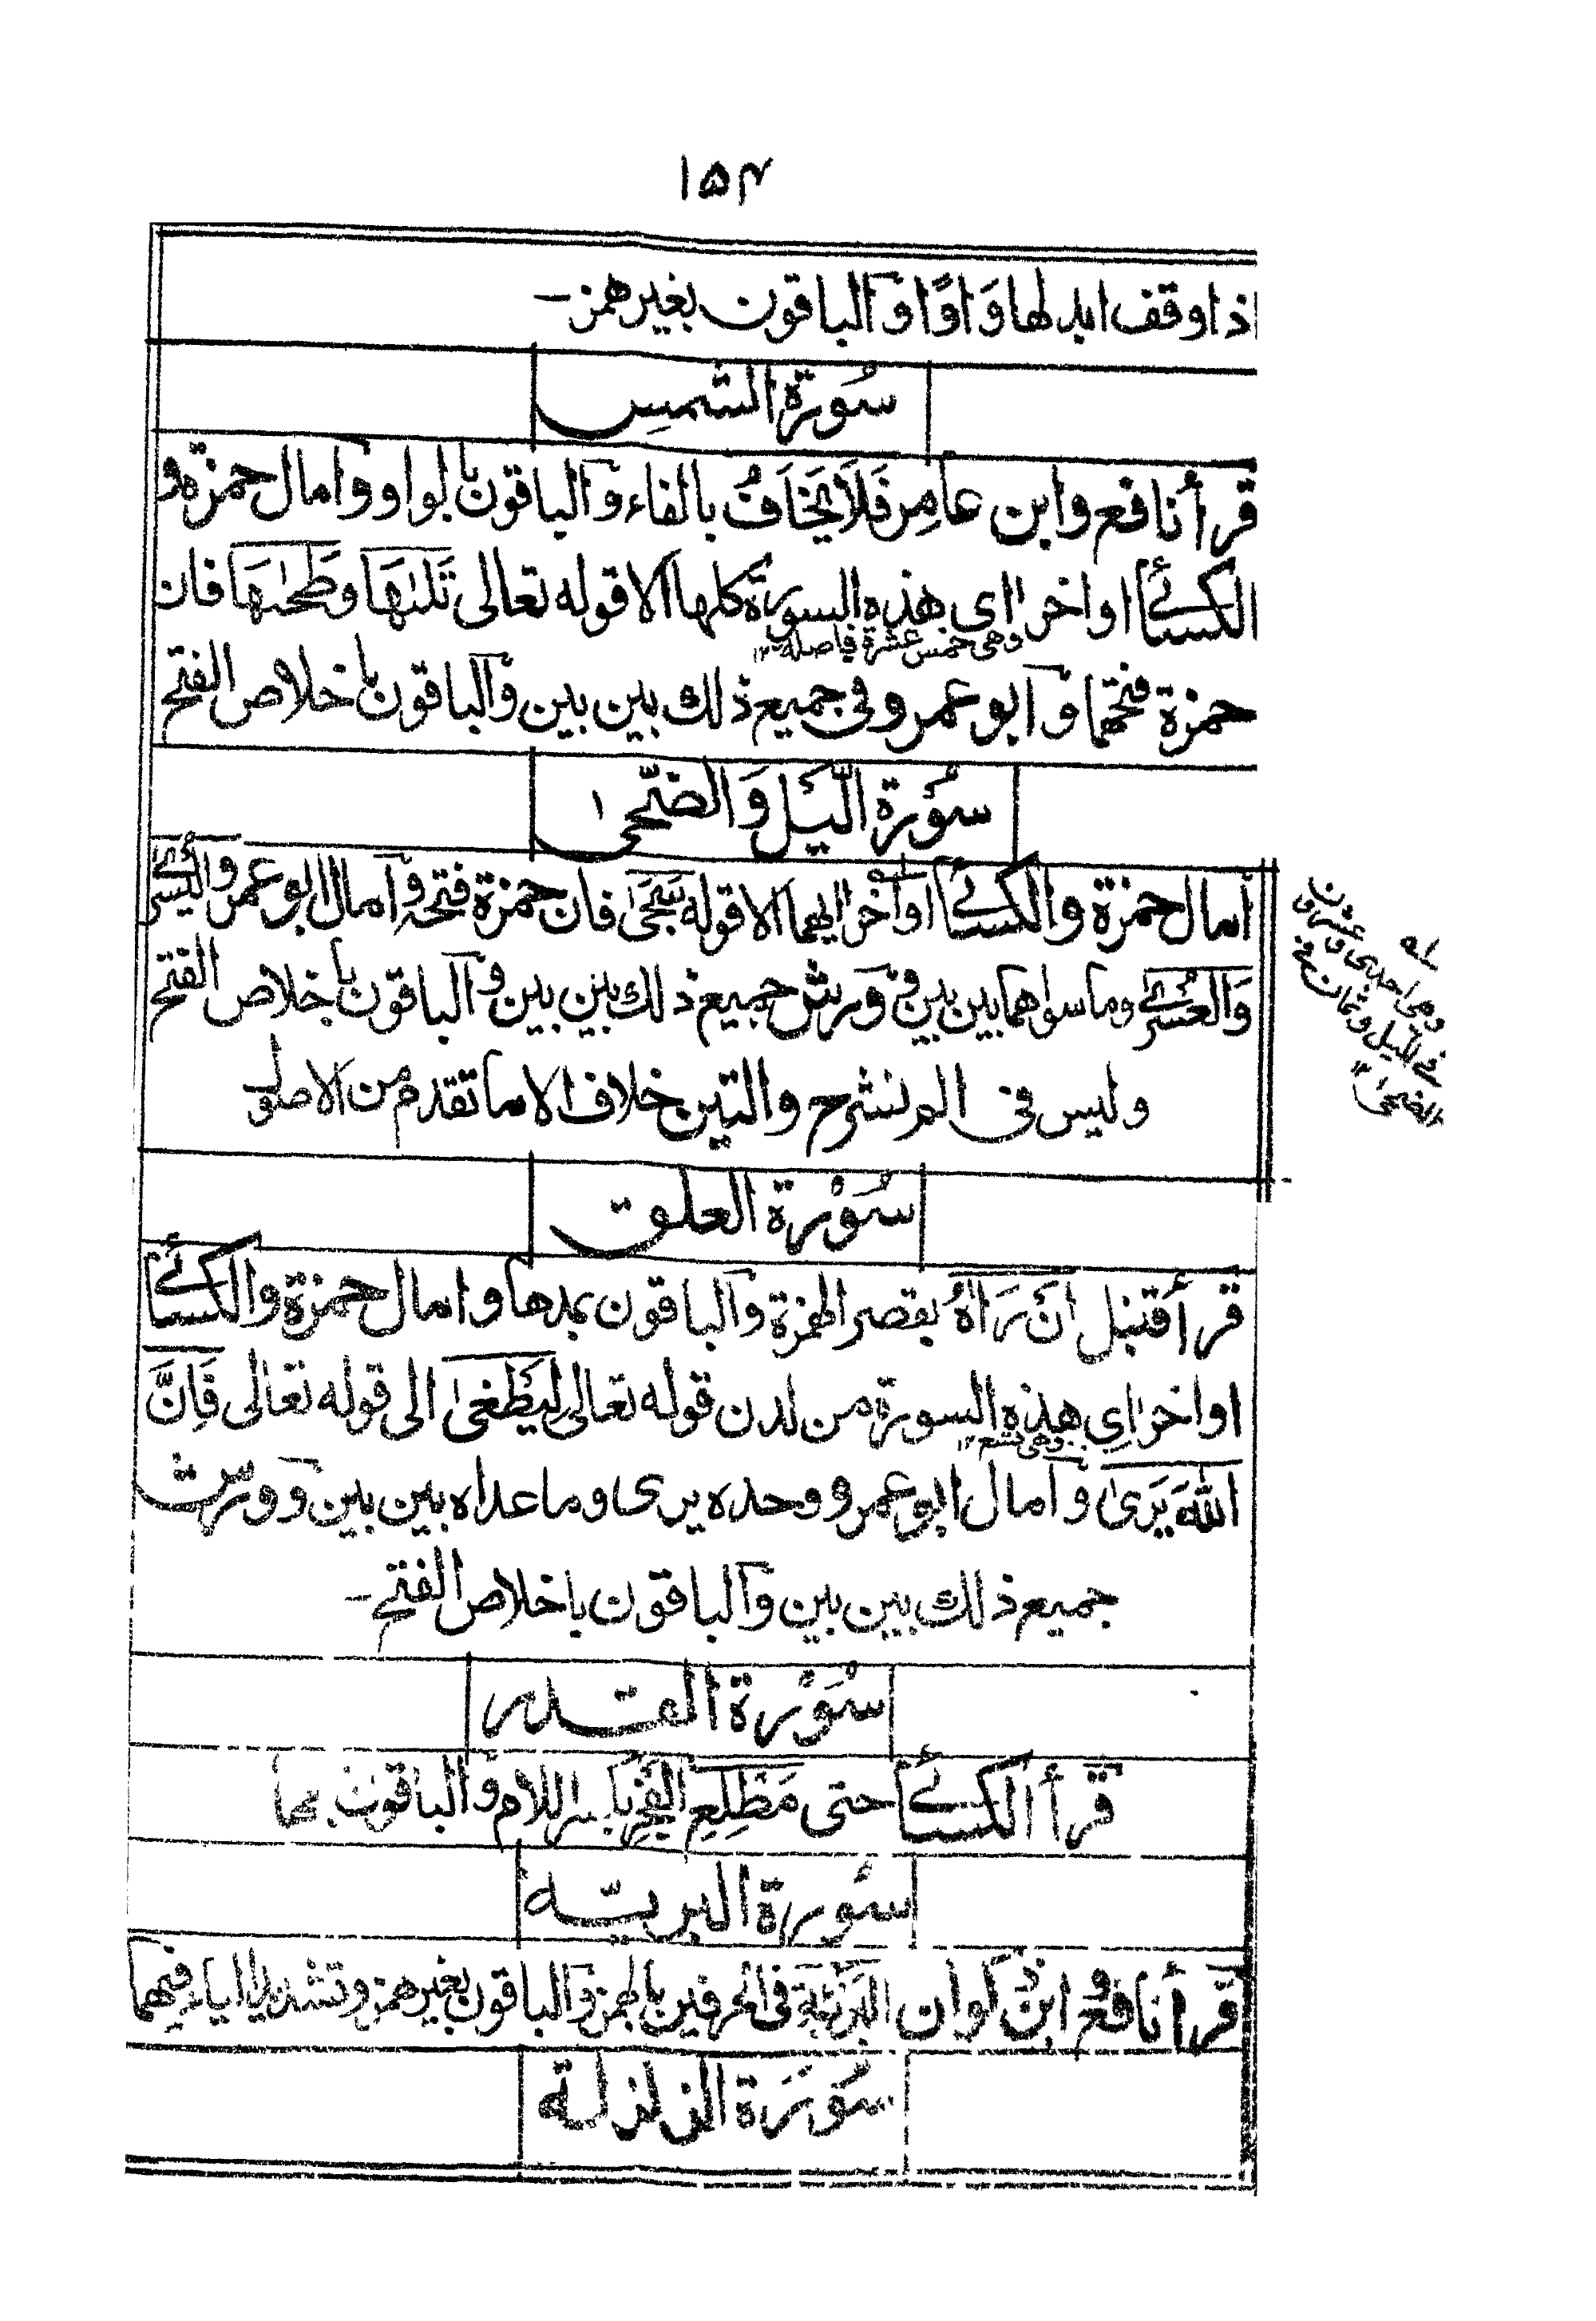 ۱۵۴
اذا وقف ابدلها وَاوًا والباقون بغير همز۔
سُورة الشمسِ
قرأ نافع وابن عامرٍ فَلَا يَخَافُ بالفاء والباقون بالواو وامال حمزة و
الكسائي اواخر اي هذه السورة كلها الا قوله تعالى تَلٰىهَا وطَحٰىهَا فان
وهي خمس عشرة فاصلة ١٢
حمزة فتحهما وابو عمرو في جميع ذلك بين بين والباقون باخلاص الفتح
سُورة الّيل وَالضّحى ١
امال حمزة والكسائي اواخر ايهما الا قوله سَجٰى فان حمزة فتحه وامال ابو عمرو لليسرى
وَالعُسرى وما سواهما بين بين وورش جميع ذلك بين بين والباقون باخلاص الفتح
وليس في الم نشرح والتين خلاف الا ما تقدم من الاصلو
سُوْرة العلق
قرأ قنبل اَنْ رَاهُ بقصر الهمزة والباقون بمدها وامال حمزة والكسائي
اواخر اي هذه السورة من لدن قوله تعالى ليَطْغىٰ الى قوله تعالى فَاِنَّ
وهي تسع ١٢
اللهَ يَرىٰ وامال ابو عمرو وحده يرى وما عداه بين بين وورش
جميع ذلك بين بين والباقون باخلاص الفتح۔
سُوْرة القدر
قرأ الكسائي حتى مَطْلِعِ الفَجْرِ بكسر اللام والباقون بفتحها
سُورة البريّه
قرأ نافع وابن ذكوان البَرِيْئَةِ في الحرفين بالهمز والباقون بغير همز وتشديد الياء فيهما
سُوْرَة الزلزلة
له
وهي احدى وعشرون
في الّيل وثمان في
الضحىٰ ١٢